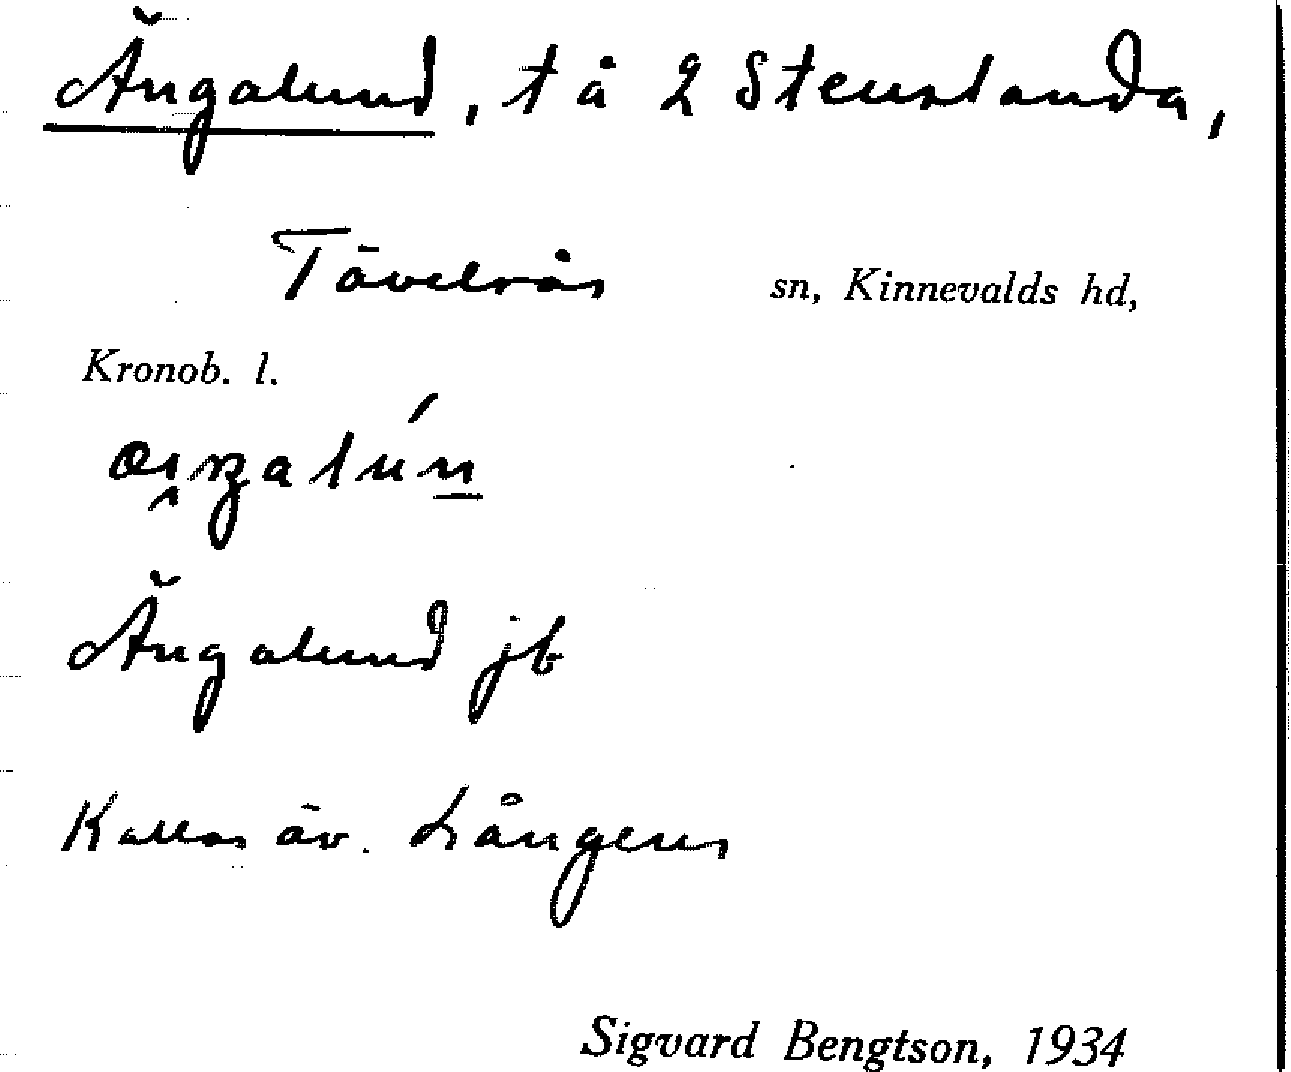 Ängalund, t å 2 Stenslanda,
Tävelsås sn, Kinnevalds hd,
Kronob. l.
Ängalund jb
Kallas äv. Långens
Sigvard Bengtson, 1934